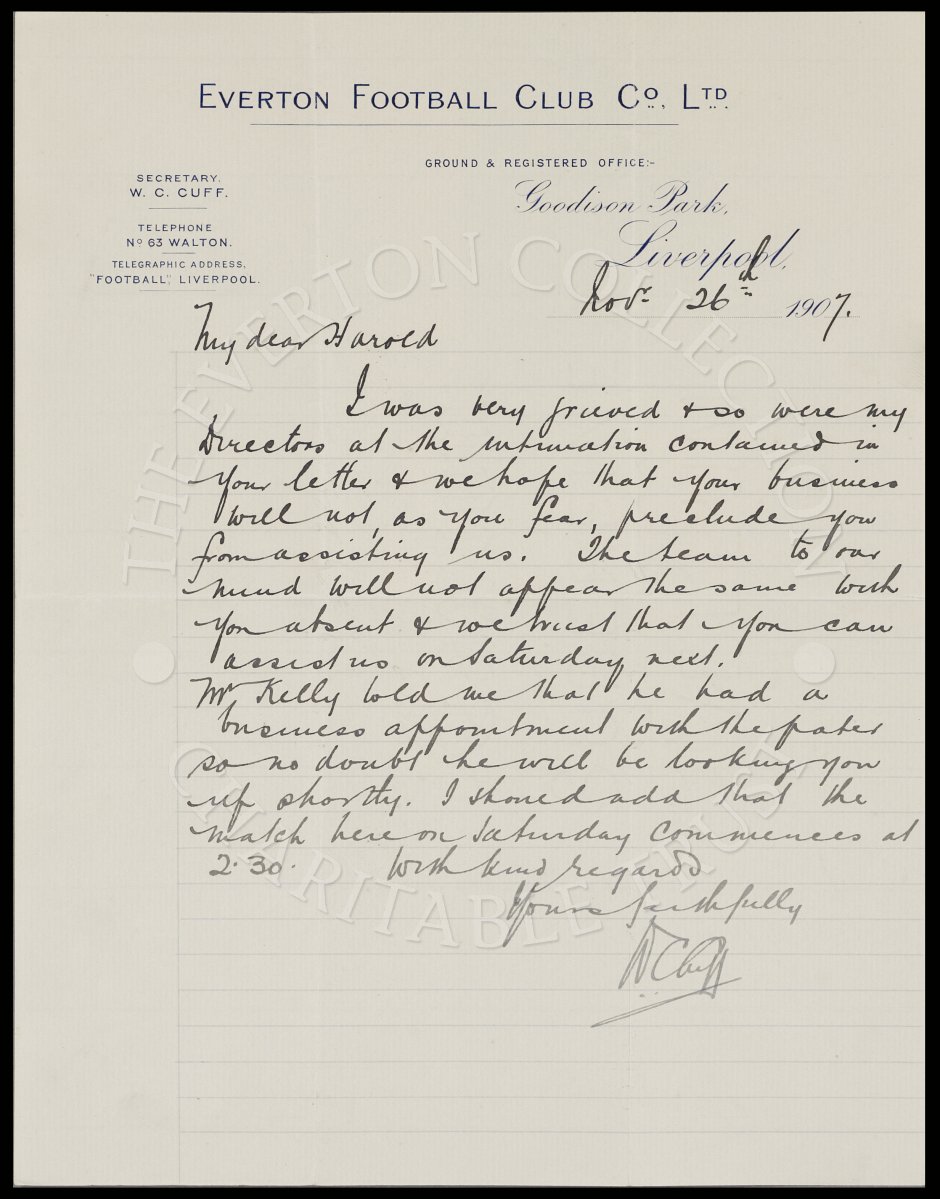 EVERTON FOOTBALL CLUB CO., LTD.
GROUND & REGISTERED OFFICE:-
SECRETARY.
W. C. CUFF.
Goodison Park,
TELEPHONE
No 63 WALTON.
Liverpool,
TELEGRAPHIC ADDRESS,
"FOOTBALL", LIVERPOOL.
Novr 26th 1907.
My dear Harold
I was very grieved & so were my
Directors at the intimation contained in
your letter & we hope that your business
will not, as you fear, preclude you
from assisting us. The team to our
mind will not appear the same with
you absent & we trust that you can
assist us on Saturday next.
Mr Kelly told me that he had a
business appointment with the pater
so no doubt he will be looking you
up shortly. I should add that the
match here on Saturday commences at
2.30. With kind regards
Yours faithfully
W C Cuff
THE EVERTON COLLECTION
CHARITABLE TRUST